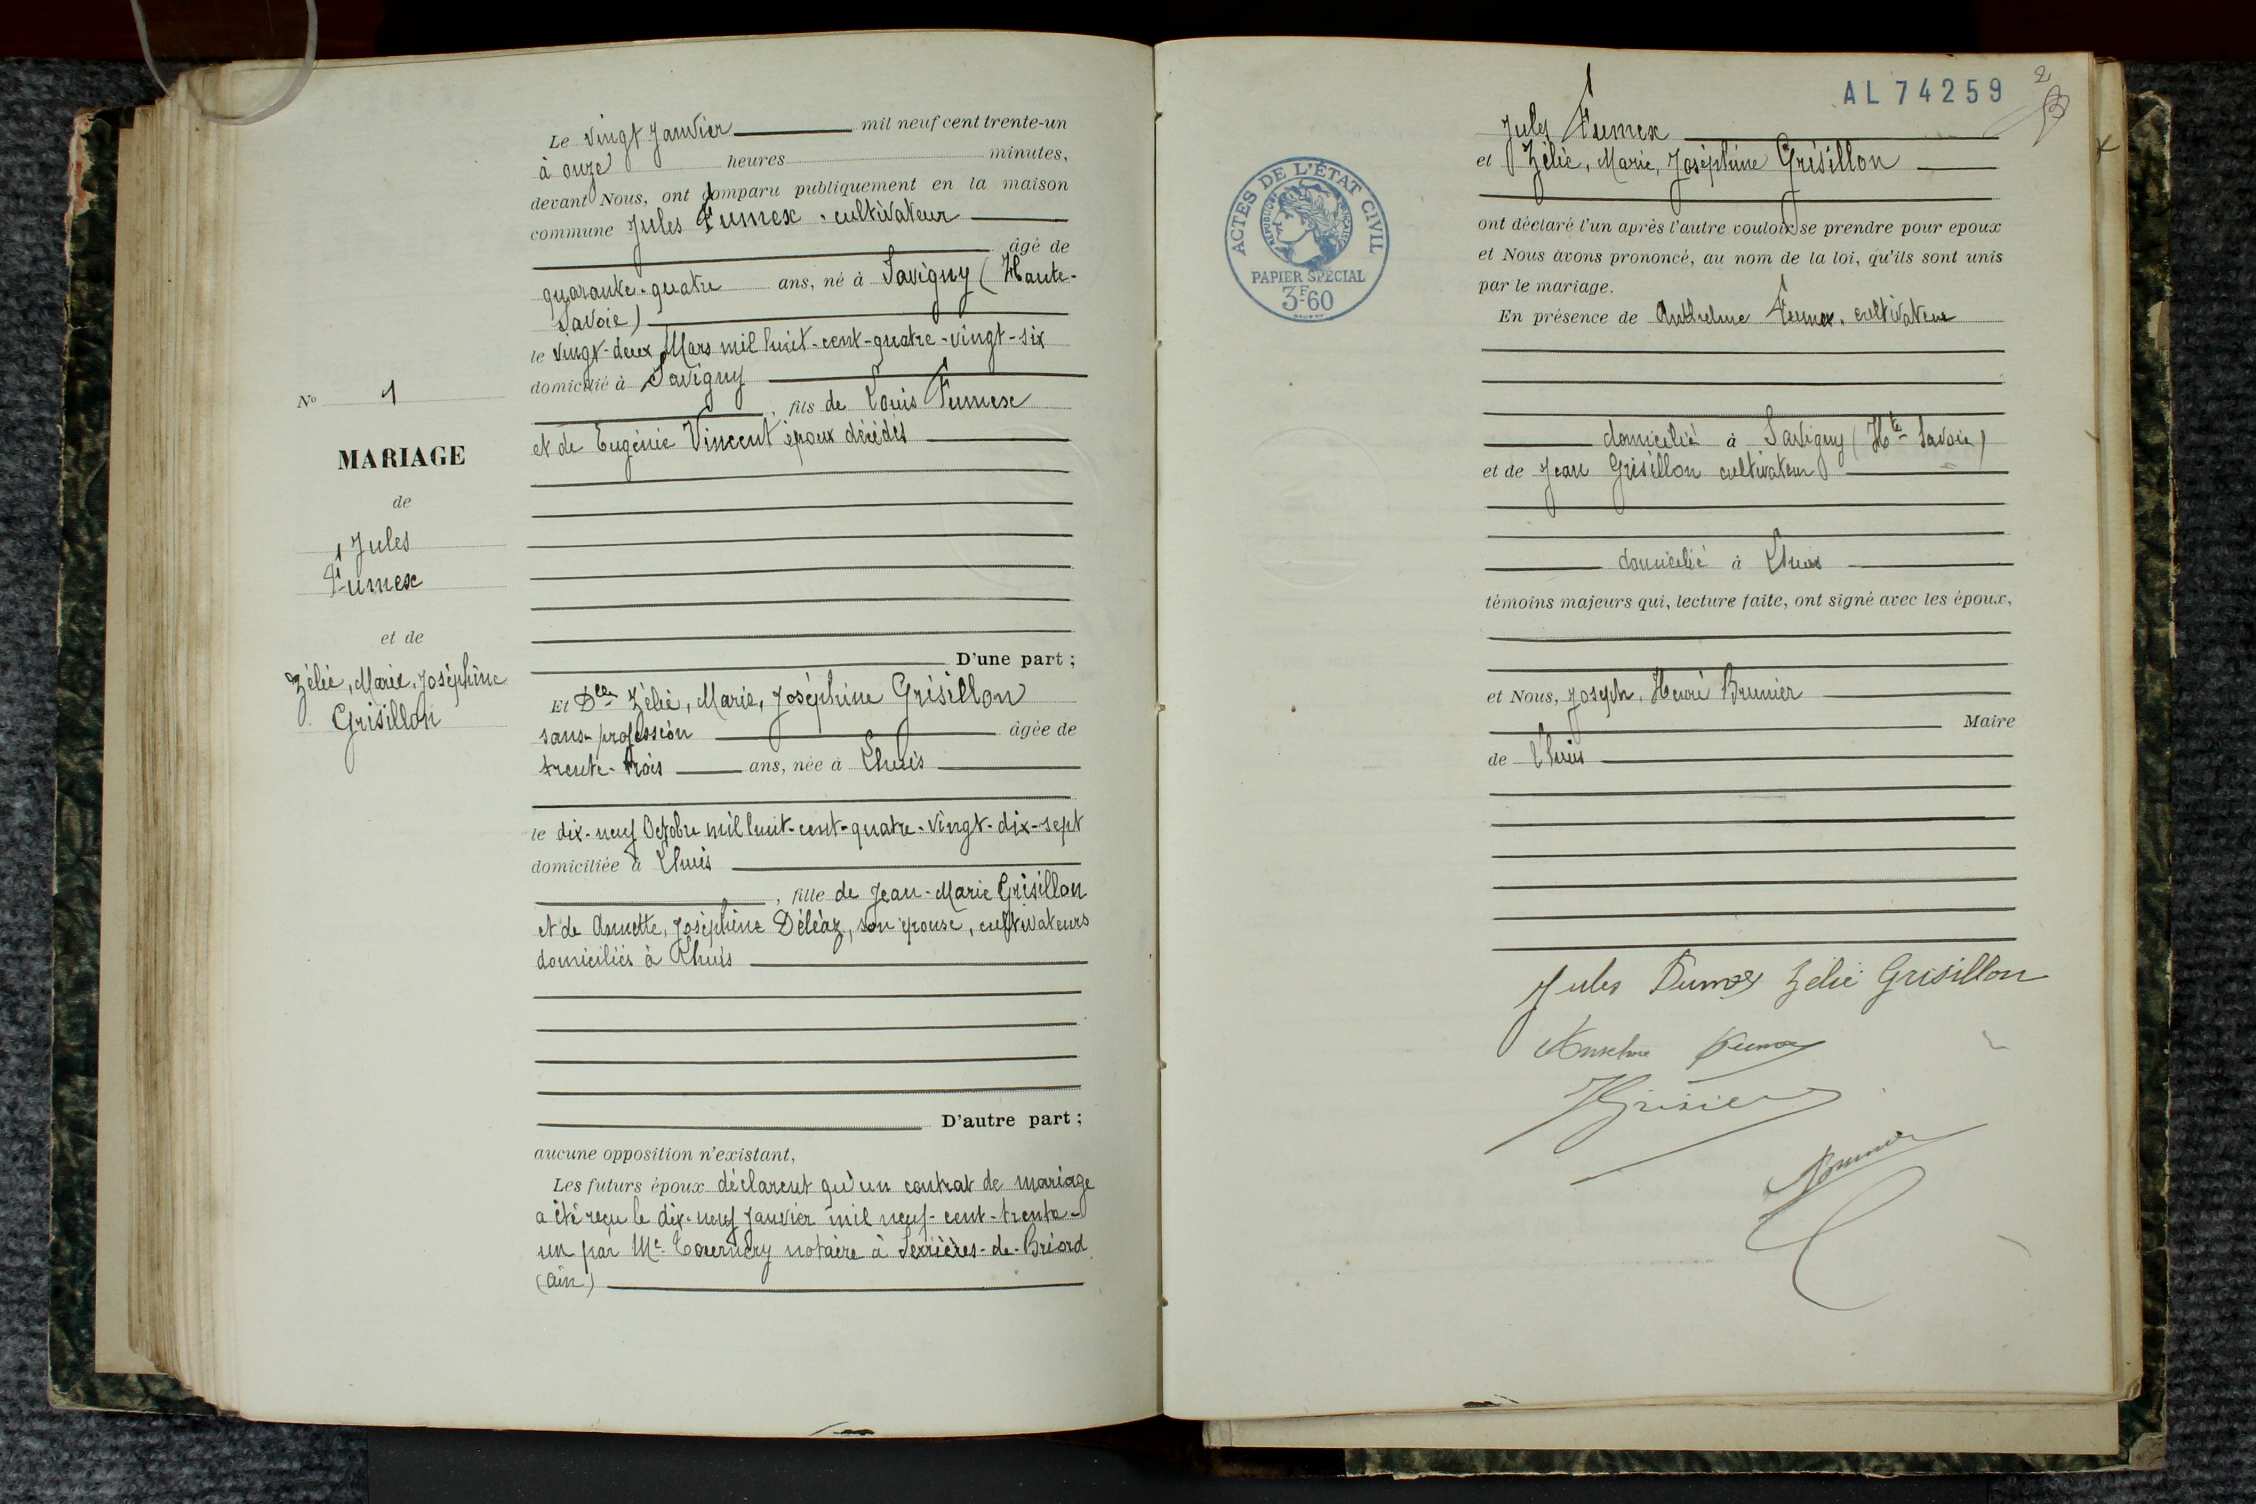 Le vingt Janvier mil neuf cent trente-un
à onze heures minutes,
devant Nous, ont comparu publiquement en la maison
commune Jules Fumex. cultivateur
âgé de
quarante-quatre ans, né à Savigny (Haute-
Savoie)
le vingt-deux Mars mil huit-cent-quatre-vingt-six
domicilié à Savigny
, fils de Louis Fumex
et de Eugénie Vincent époux décédés
No 1
MARIAGE
de
Jules
Fumex
et de
Zélie, Marie, Joséphine
Grisillon
D'une part ;
Et Dlle Zélie, Marie, Joséphine Grisillon
sans-profession âgée de
trente-trois ans, née à Lhuis
le dix-neuf Octobre mil huit-cent-quatre-vingt-dix-sept
domiciliée à Lhuis
, fille de Jean-Marie Grisillon
et de Annette, Joséphine Déléaz, son épouse, cultivateurs
domiciliés à Lhuis
D'autre part ;
aucune opposition n'existant,
Les futurs époux déclarent qu'un contrat de mariage
a été reçu le dix-neuf Janvier mil neuf-cent-trente-
un par Me notaire à Serrières-de-Briord
(Ain)
AL 74259
2
ACTES DE L'ÉTAT CIVIL
RÉPUBLIQUE FRANÇAISE
PAPIER SPÉCIAL
3F60
Jules Fumex
et Zélie, Marie, Joséphine Grisillon
ont déclaré l'un après l'autre vouloir se prendre pour epoux
et Nous avons prononcé, au nom de la loi, qu'ils sont unis
par le mariage.
En présence de Anthelme Fumex, cultivateur
domicilié à Savigny (Hte-Savoie)
et de Jean Grisillon cultivateur
domicilié à Lhuis
témoins majeurs qui, lecture faite, ont signé avec les époux,
et Nous, Joseph, Henri Brunier
Maire
de Lhuis
Jules Fumex Zélie Grisillon
Anselme Fumex
Brunier